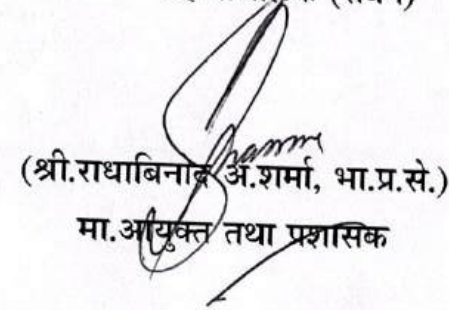 (श्री.राधाबिनोद अ.शर्मा, भा.प्र.से.)
मा.आयुक्त तथा प्रशासक